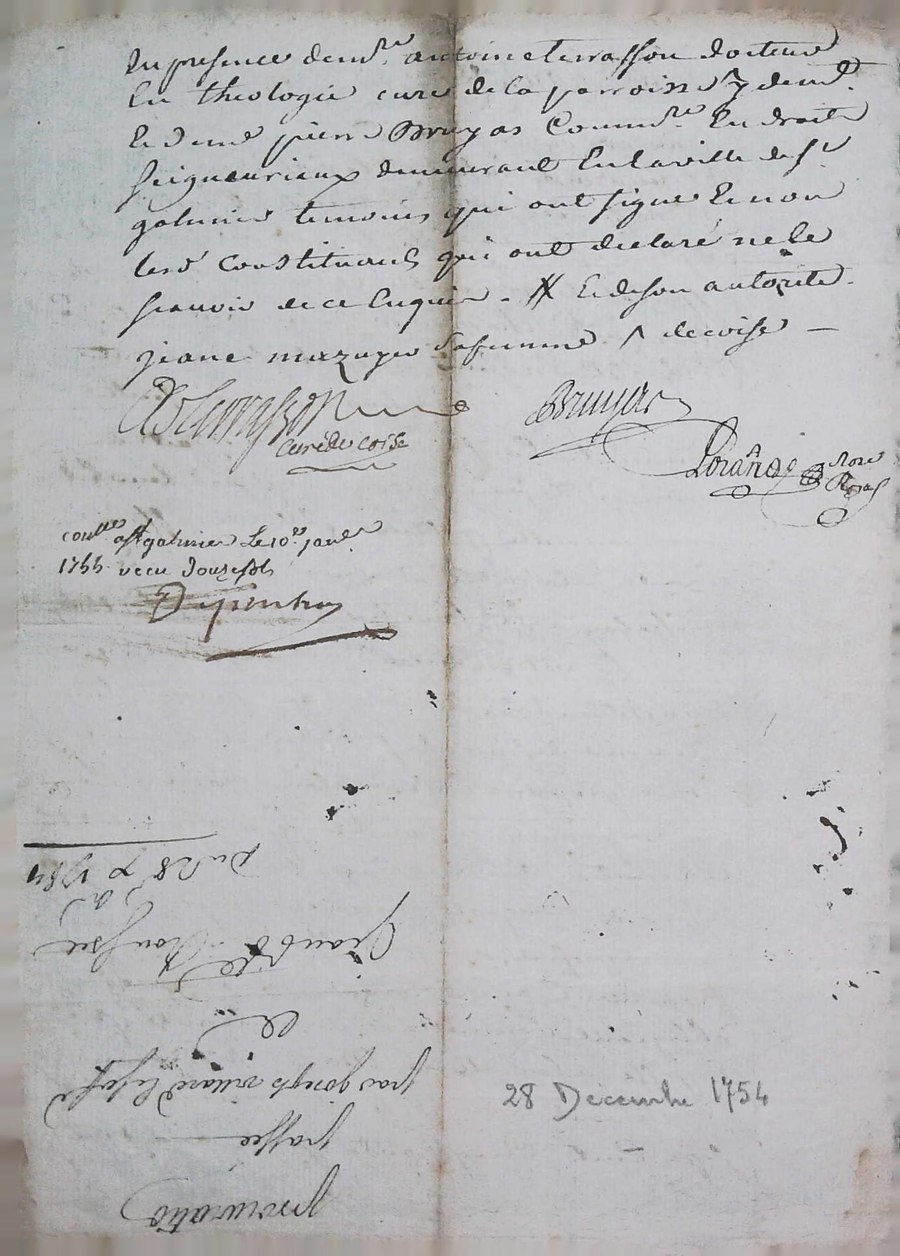 En presence de mre. antoine terrasson docteur
En theologie curé de la parroisse y demt.
Et de me pierre Bruyas Commre. En droits
seigneuriaux demeurant En la ville de St
galmier temoins qui ont signé Et non
lesd constituants qui ont declaré ne le
scavoir de ce Enquis. # Et de son autorité.
jeane mazuyer sa femme ^ de coise —
terrasson
curé de coise
Bruyas
Lorange Nore
Royal
conlle a St galmier Le 10e. janer
1755 recu douze sols
procuration
passée
par joseph villard
a
grand
Du 28 x 1754
28 Decembre 1754